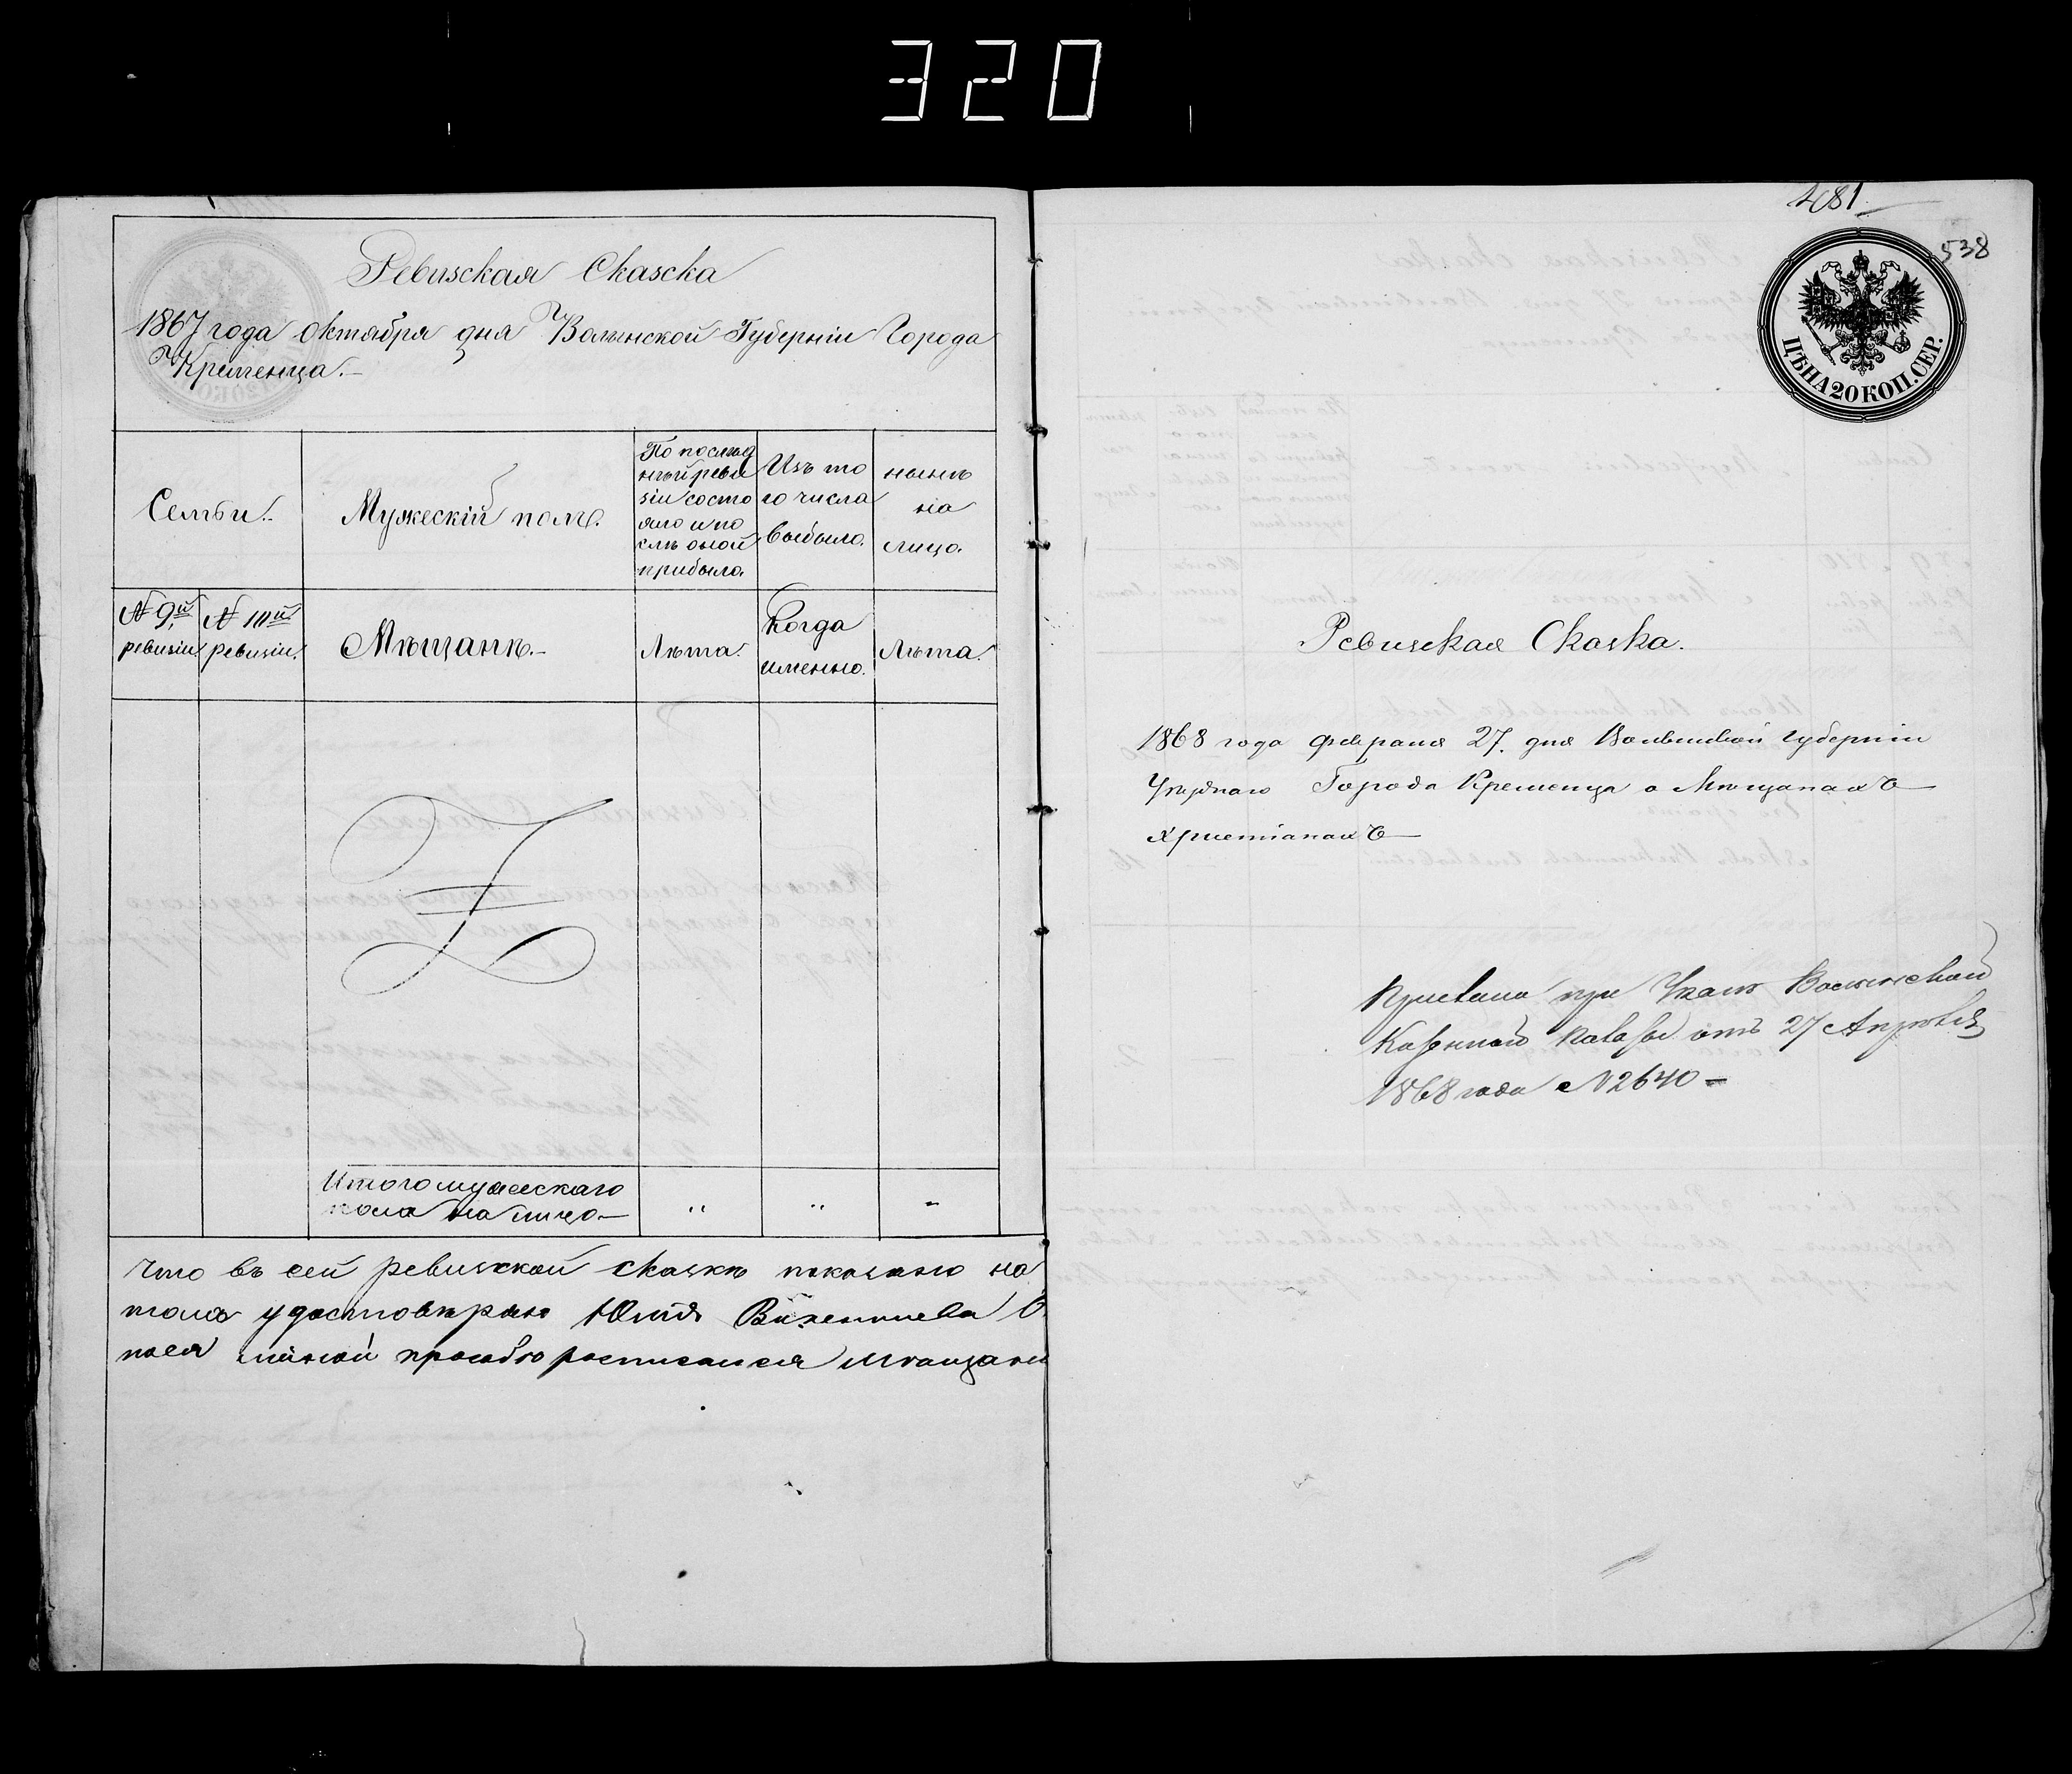 320
Ревизская Сказска
1867 года октября дня Волынской Губерніи Города
Кременца.–
Семьи..
Мужескій полъ.
По послѣд
нѣй реви
зіи состо
яло и по
слѣ оной
прибыло.
Изъ то
го числа
выбыло.
нынѣ
на
лицо.
№ 9й ревизіи
№ 10й ревизіи.
Мѣщанъ.–
Лѣта.
Когда
именно.
Лѣта.
Итого мужескаго
пола на лицо–
" " "
Что въ сей ревизской сказкѣ показано на
удостовѣряю Юлія Викентиева
личной просьбою росписался мѣщани
481
538
ЦѢНА 20 КОП. СЕР.
Ревизская Сказка.
1868 года февраля 27. дня Волынской губерніи
Уѣзднаго Города Кременца о Мѣщанахъ
христіанахъ
при Указѣ Волынской
Казенной Палаты отъ 27 Апрѣля
1868 года №2640–